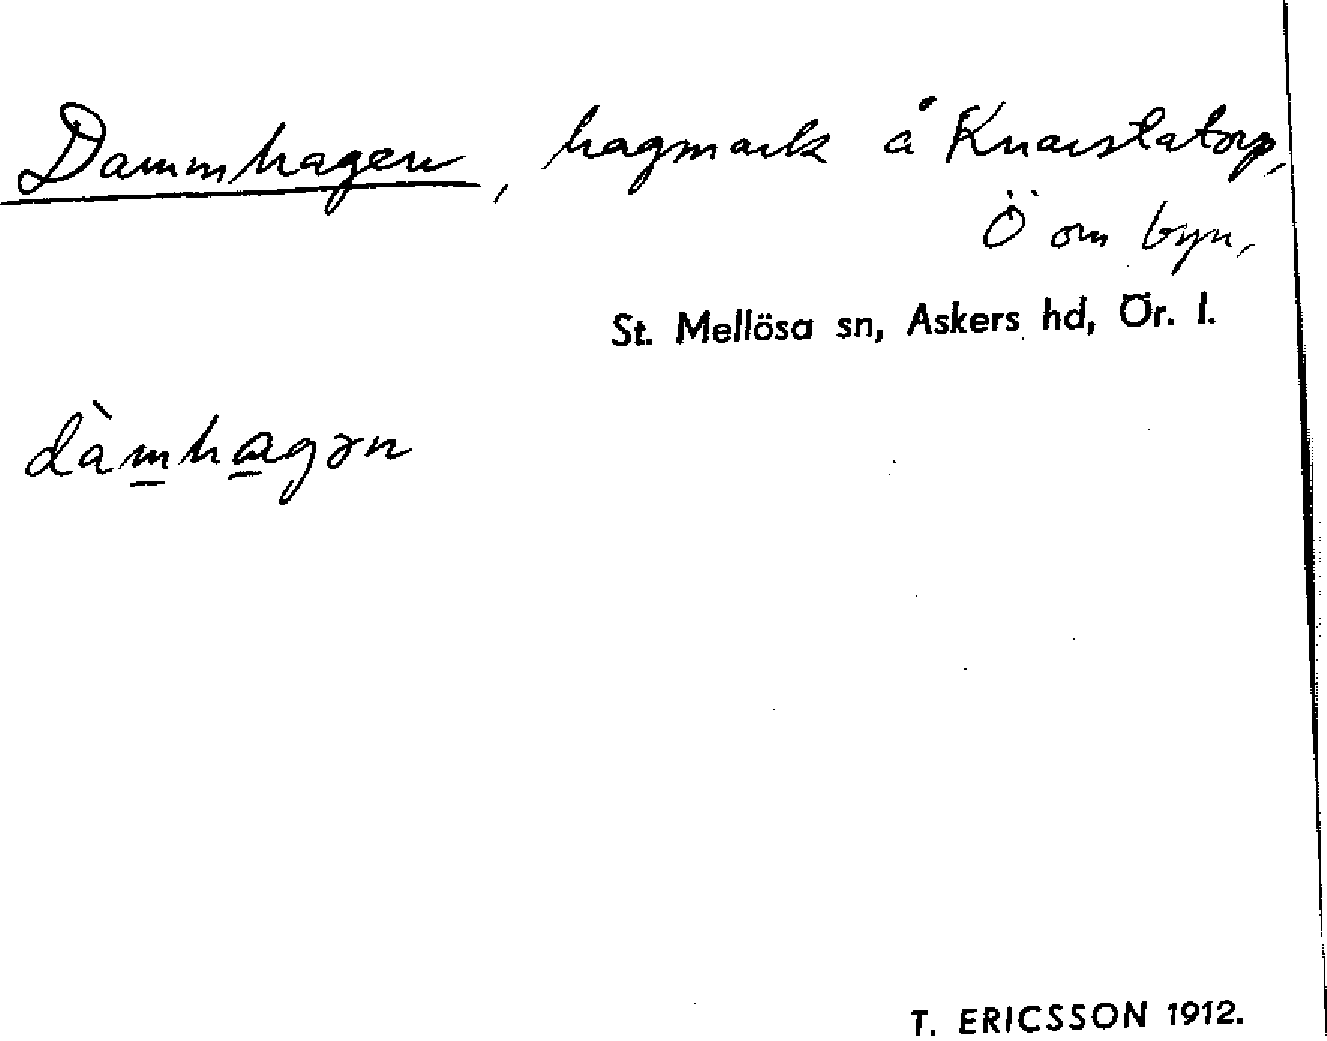 Dammhagen, hagmark å Knarstatorp,
Ö om byn,
St. Mellösa sn, Askers hd, Ör. l.
dàm̲ha̲gən
T. ERICSSON 1912.